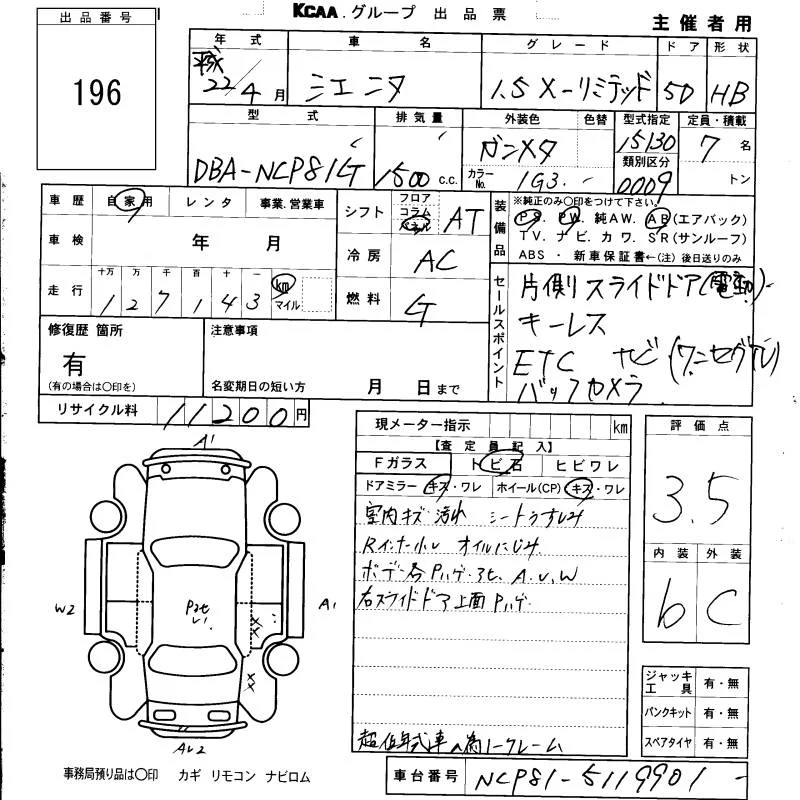 KCAA.グループ 出品票
主催者用
出品番号
196
年式 車名 グレード ドア 形状
平成22/4月 シエンタ 1.5 X-リミテッド 5D HB
型式 排気量 外装色 色替 型式指定 定員・積載
DBA-NCP81G 1500 c.c. ガンメタ 15130 7名
カラーNo. 1G3 類別区分 0009 トン
車歴 自家用 レンタ 事業.営業車
車検 年 月
十万 万 千 百 十 一
走行 1 2 7 1 4 3 km マイル
シフト フロア コラム パネル AT
冷房 AC
燃料 G
装備品
※純正のみ○印をつけて下さい。
PS. PW. 純AW. AB(エアバック)
TV. ナビ. カワ. SR(サンルーフ)
ABS ・ 新車保証書←(注)後日送りのみ
セールスポイント
片側スライドドア(電動)
キーレス
ETC ナビ(ワンセグTV)
バックカメラ
修復歴 箇所
有
(有の場合は○印を)
注意事項
名変期日の短い方 月 日まで
リサイクル料 11200円
現メーター指示 km
【査定員記入】
Fガラス トビ石 ヒビワレ
ドアミラー キズ・ワレ ホイール(CP) キズ・ワレ
室内キズ 汚れ シートうすしみ
Rインナー小レ オイルにじみ
ボデー各Pハゲ・アセ、A.U.W
右スライドドア上面 Pハゲ
超低年式車の為ノークレーム
評価点
3.5
内装 外装
b C
ジャッキ工具 有・無
パンクキット 有・無
スペアタイヤ 有・無
A1
W2
A1
AU2
事務局預り品は○印 カギ リモコン ナビロム
車台番号 NCP81-5119901